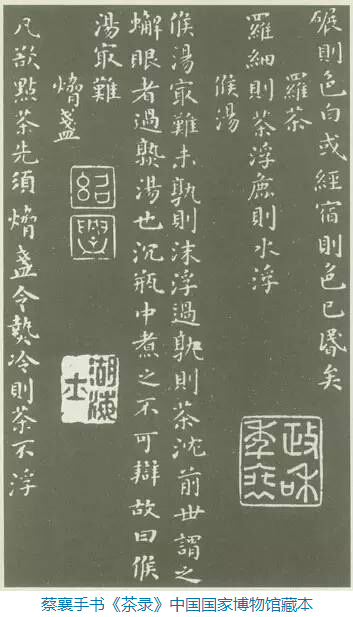 碾則色白或經宿則色已昬矣
羅茶
羅細則茶浮麁則水浮
候湯
候湯冣難未孰則沫浮過孰則茶沈前世謂之
蠏眼者過熟湯也沉瓶中煮之不可辯故曰候
湯冣難
熁盞
凡欲點茶先須熁盞令熱冷則茶不浮
紹興
政和
蔡襄手书《茶录》中国国家博物馆藏本